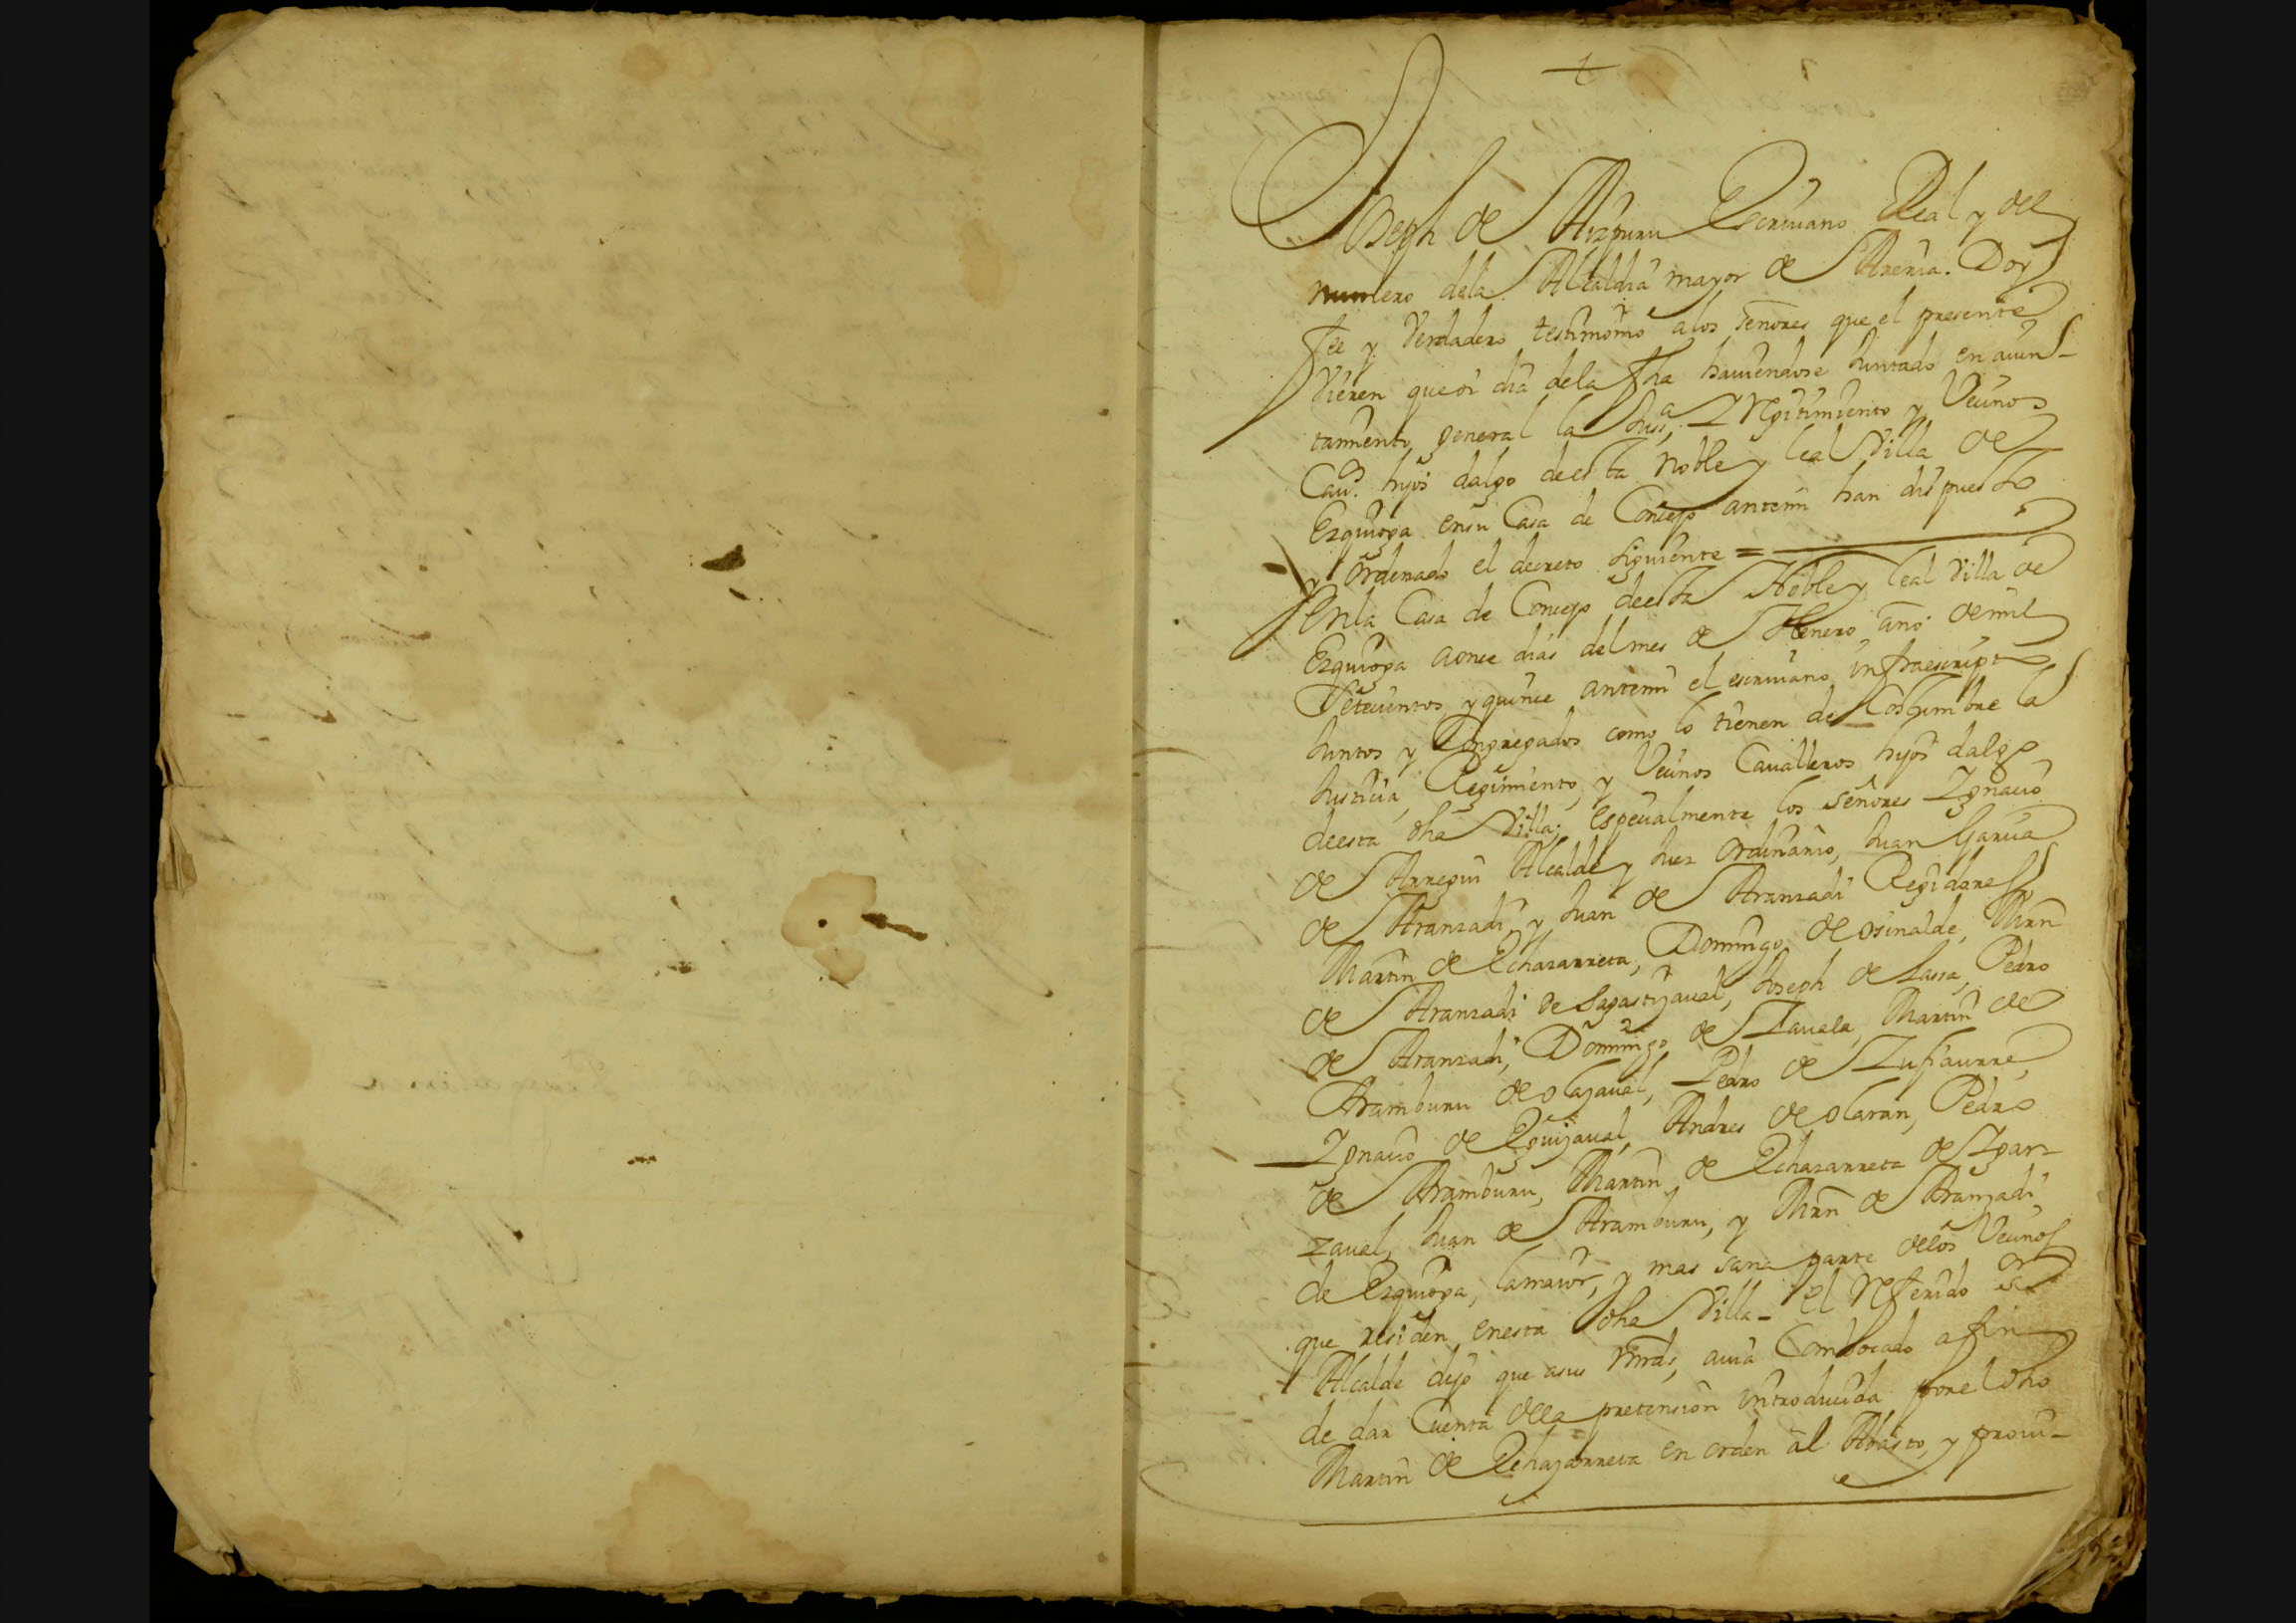 +
Joseph de Aizpuru Escriuano Real y del
numero dela Alcaldia mayor de Areria. Doy
fee y Verdadero testimonio alos señores que el presente
Vieren que oi dia dela fha hauiendose Juntado en aiun-
tamiento general la Jusª, Regimiento y Veunos
Cauos hijos dalgo de esta noble y leal Villa de
Ezquioga ensu Casa de Concejo antemi han dispuesto
y ordenado el decreto siguiente =
Enla Casa de Concejo deesta Noble y leal Villa de
Ezquioga aonce dias del mes de Henero año de mil
Setecientos y quince antemi el escriuano infraescripto
Juntos y Congregados como lo tienen de Costumbre la
Justicia, Regimiento, y Vecinos Caualleros hijos dalgo
deesta dha Villa; especialmente los señores Ignacio
de Arregui Alcalde y Juez ordinario, Juan Garcia
de Aranzadi, y Juan de Aranzadi Regidores,
Martin de Echazarreta, Domingo de osinalde, Mrn
de Aranzadi de Sagastiyaual, Joseph de Lassa, Pedro
de Aranzadi, Domingo de Zauala, Martin de
Aramburu de olajaual, Pedro de Zufiaurre,
Ignacio de Eguijaual, Andres de olaran, Pedro
de Aramburu, Martin de Echazarreta de Igarz
zaual, Juan de Aramburu, y Mrn de Aranzadi
de Ezquioga, lamaior, y mas sana parte delos Vecinos
que residen enesta dha Villa - el Referido Sr
Alcalde dijo que asus mrds, auia Combocado afin
de dar Cuenta dela pretension introducida por el dho
Martin de Echazarreta en orden al Abasto, y proui-